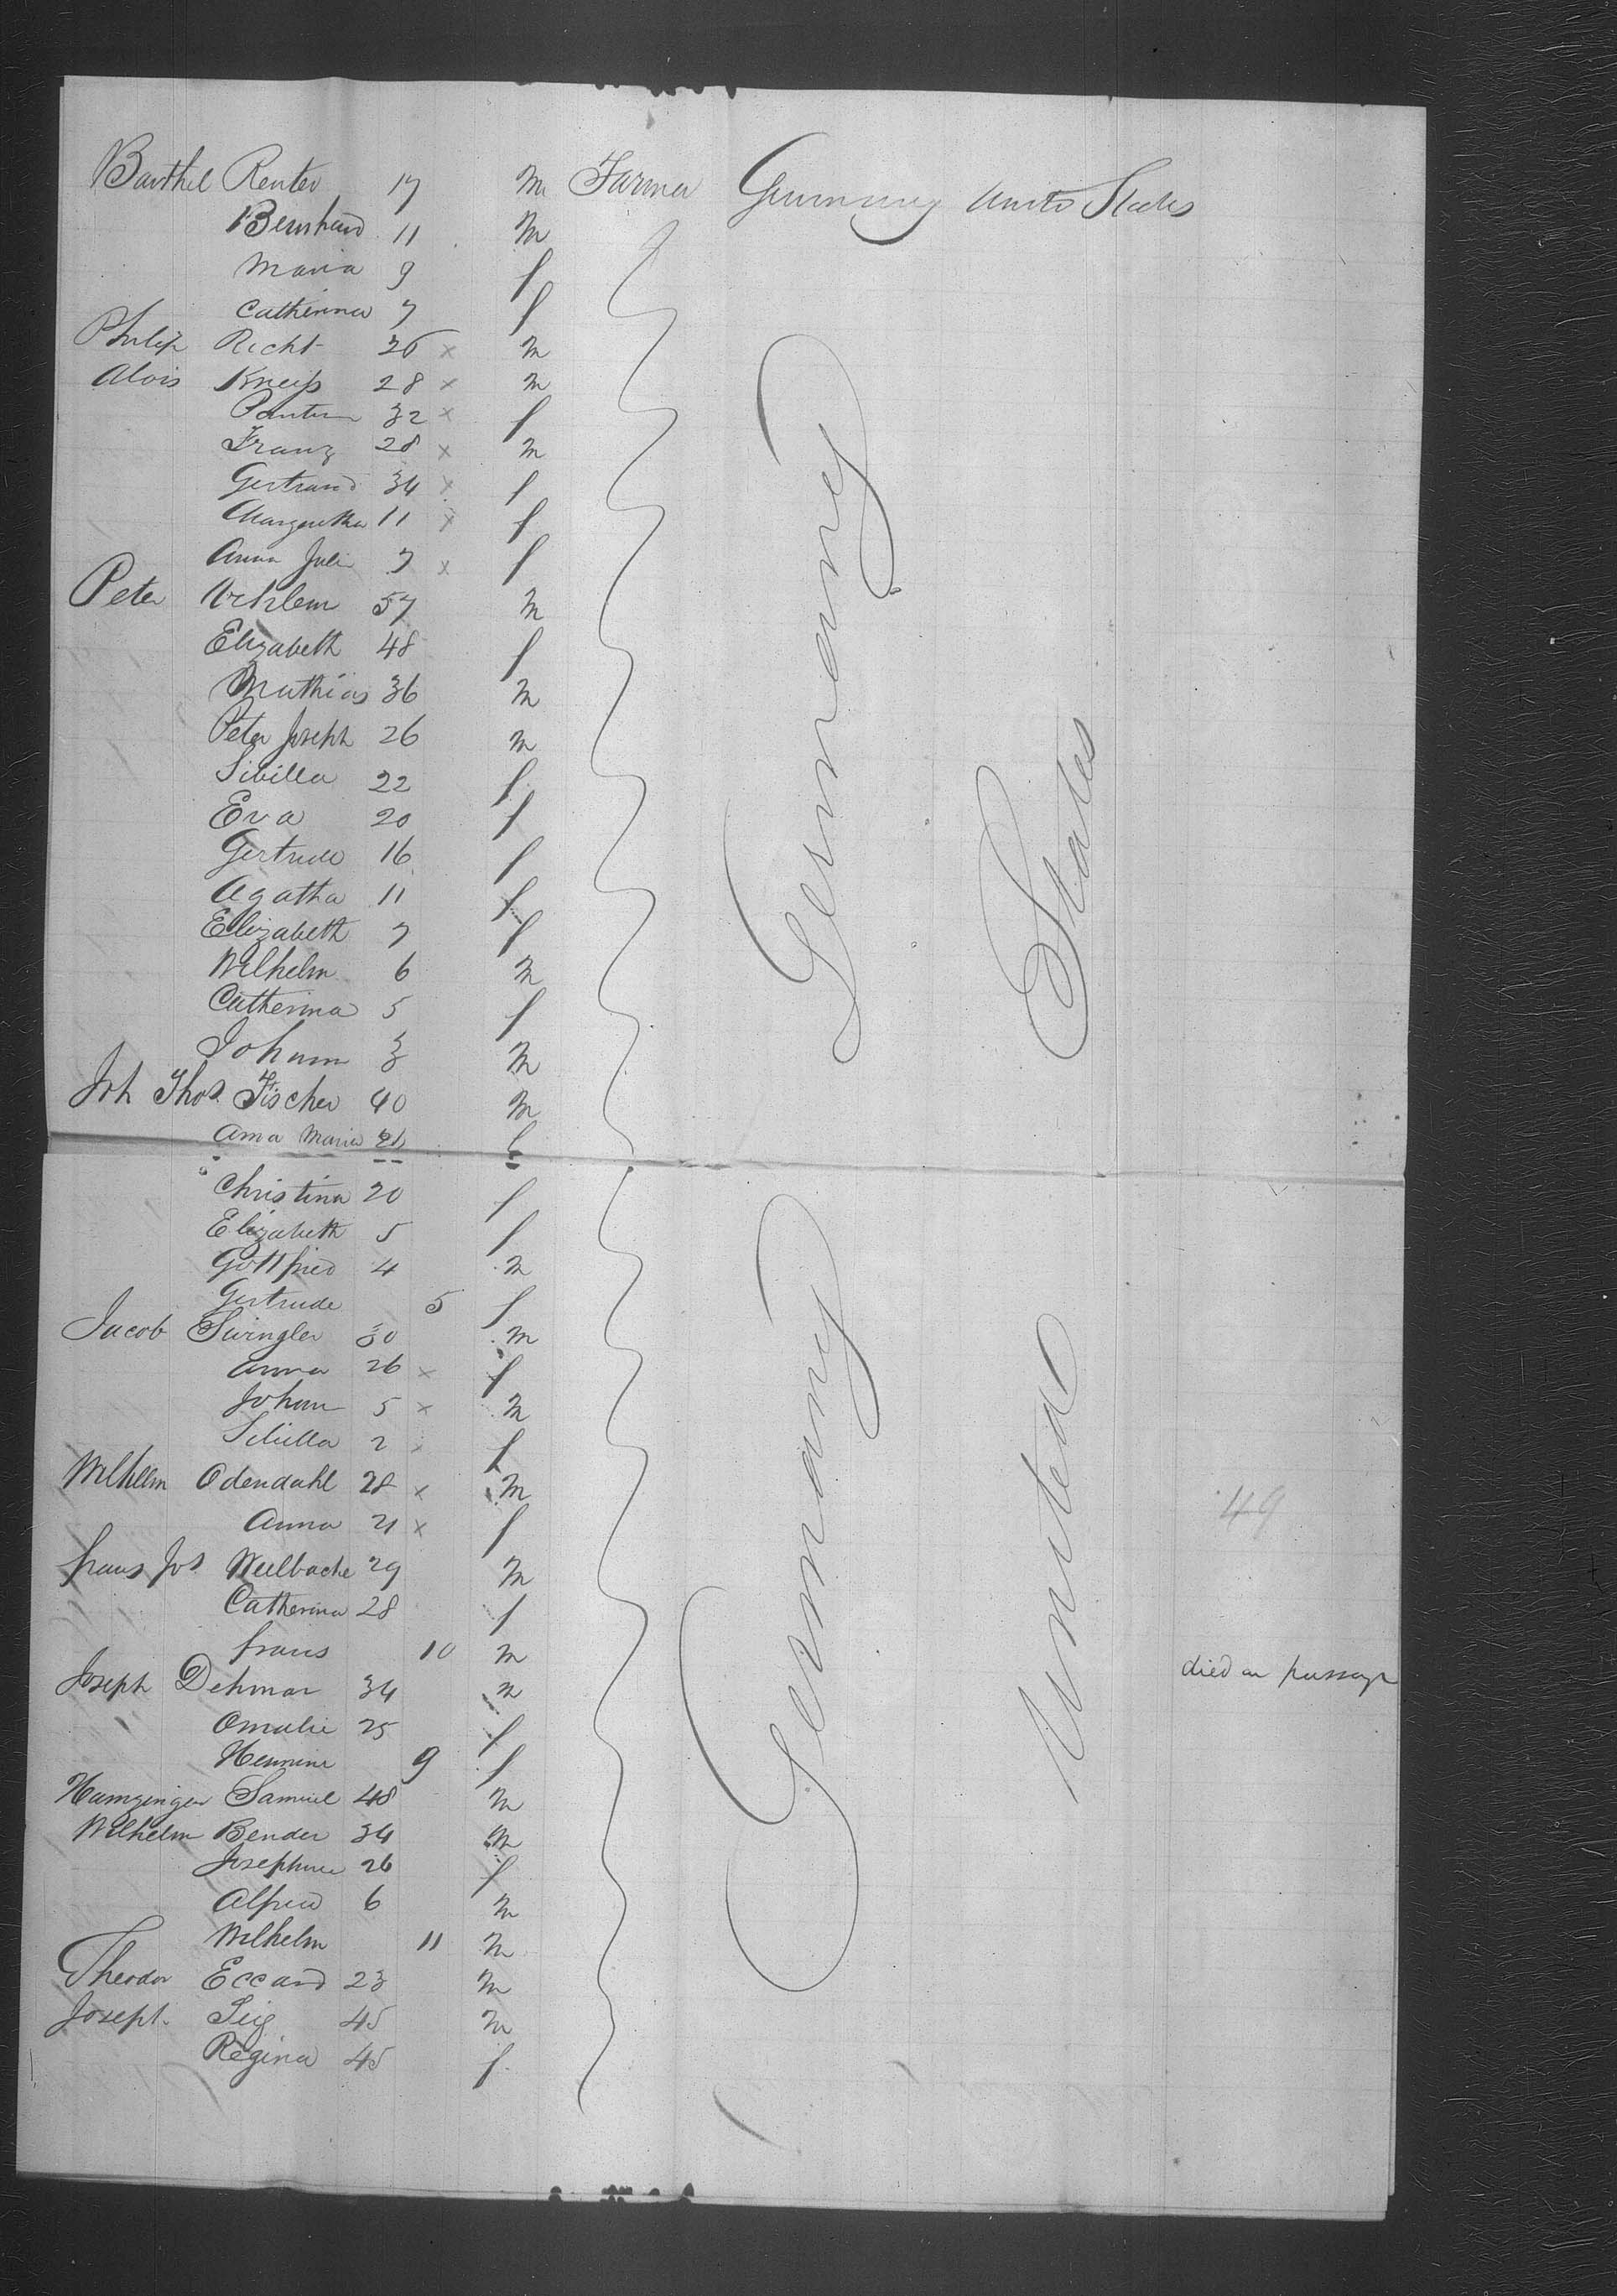 Barthel Renter 17 m Farmer Germany United States
Bernhard 11 m
Maria 9 f
Catherina 7 f
Philip Richt 36 x m
Alois Kneip 28 x m
32 x f
Franz 28 x m
Gertraud 34 x f
Margaretha 11 x f
Anna Julie 7 x f
Peter 57 m
Elizabeth 48 f
Mathias 36 m
Peter Joseph 26 m
Sibilla 22 f
Eva 20 f
Gertrude 16 f
Agatha 11 f
Elizabeth 7 f
Wilhelm 6 m
Catherina 5 f
Johann 3 m
Joh Thos Fischer 40 m
Anna Maria f
Christina 20 f
Elizabeth 5 f
Gottfried 4 m
Gertrude 5 f
Jacob Swingler 30 m
Anna 26 x f
Johann 5 x m
Sibilla 2 x f
Wilhelm Odendahl 28 x m
Anna 21 x f
49
Frans Jos Weilbache 29 m
Catherina 28 f
frans 10 m died on passage
Joseph Dehmar 34 m
Omalie 25 f
Hermine 9 f
Hamzinger Samuel 48 m
Wilhelm Bender 34 m
Josephine 26 f
Alfred 6 m
Wilhelm 11 m
Theodor Eccard 23 m
Joseph Sieg 45 m
Regina 45 f
Germany Germany
United States